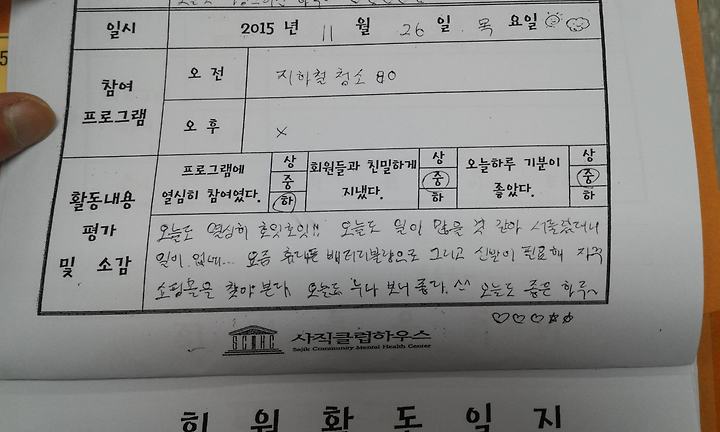 일시 2015 년 11 월 26 일 목 요일
참여 프로그램
오 전 지하철 청소 80
오 후 x
활동내용 평가 및 소감
프로그램에 열심히 참여였다. 상 중 하
회원들과 친밀하게 지냈다. 상 중 하
오늘하루 기분이 좋았다. 상 중 하
오늘도 열심히 호잇호잇!! 오늘도 일이 많을 것 같아 서둘렀더니
일이 없네... 요즘 휴대폰 배터리불량으로 그리고 신발이 필요해 자꾸
쇼핑몰을 찾아 본다. 오늘도 누나 보니 좋다. ^^ 오늘도 좋은 하루~
사직클럽하우스
Sajik Community Mental Health Center
회 원 활 동 일 지